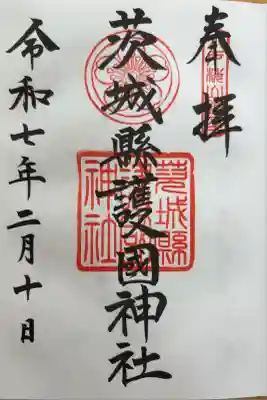 奉拝
茨城縣護國神社
令和七年二月十日
茨城縣
神社